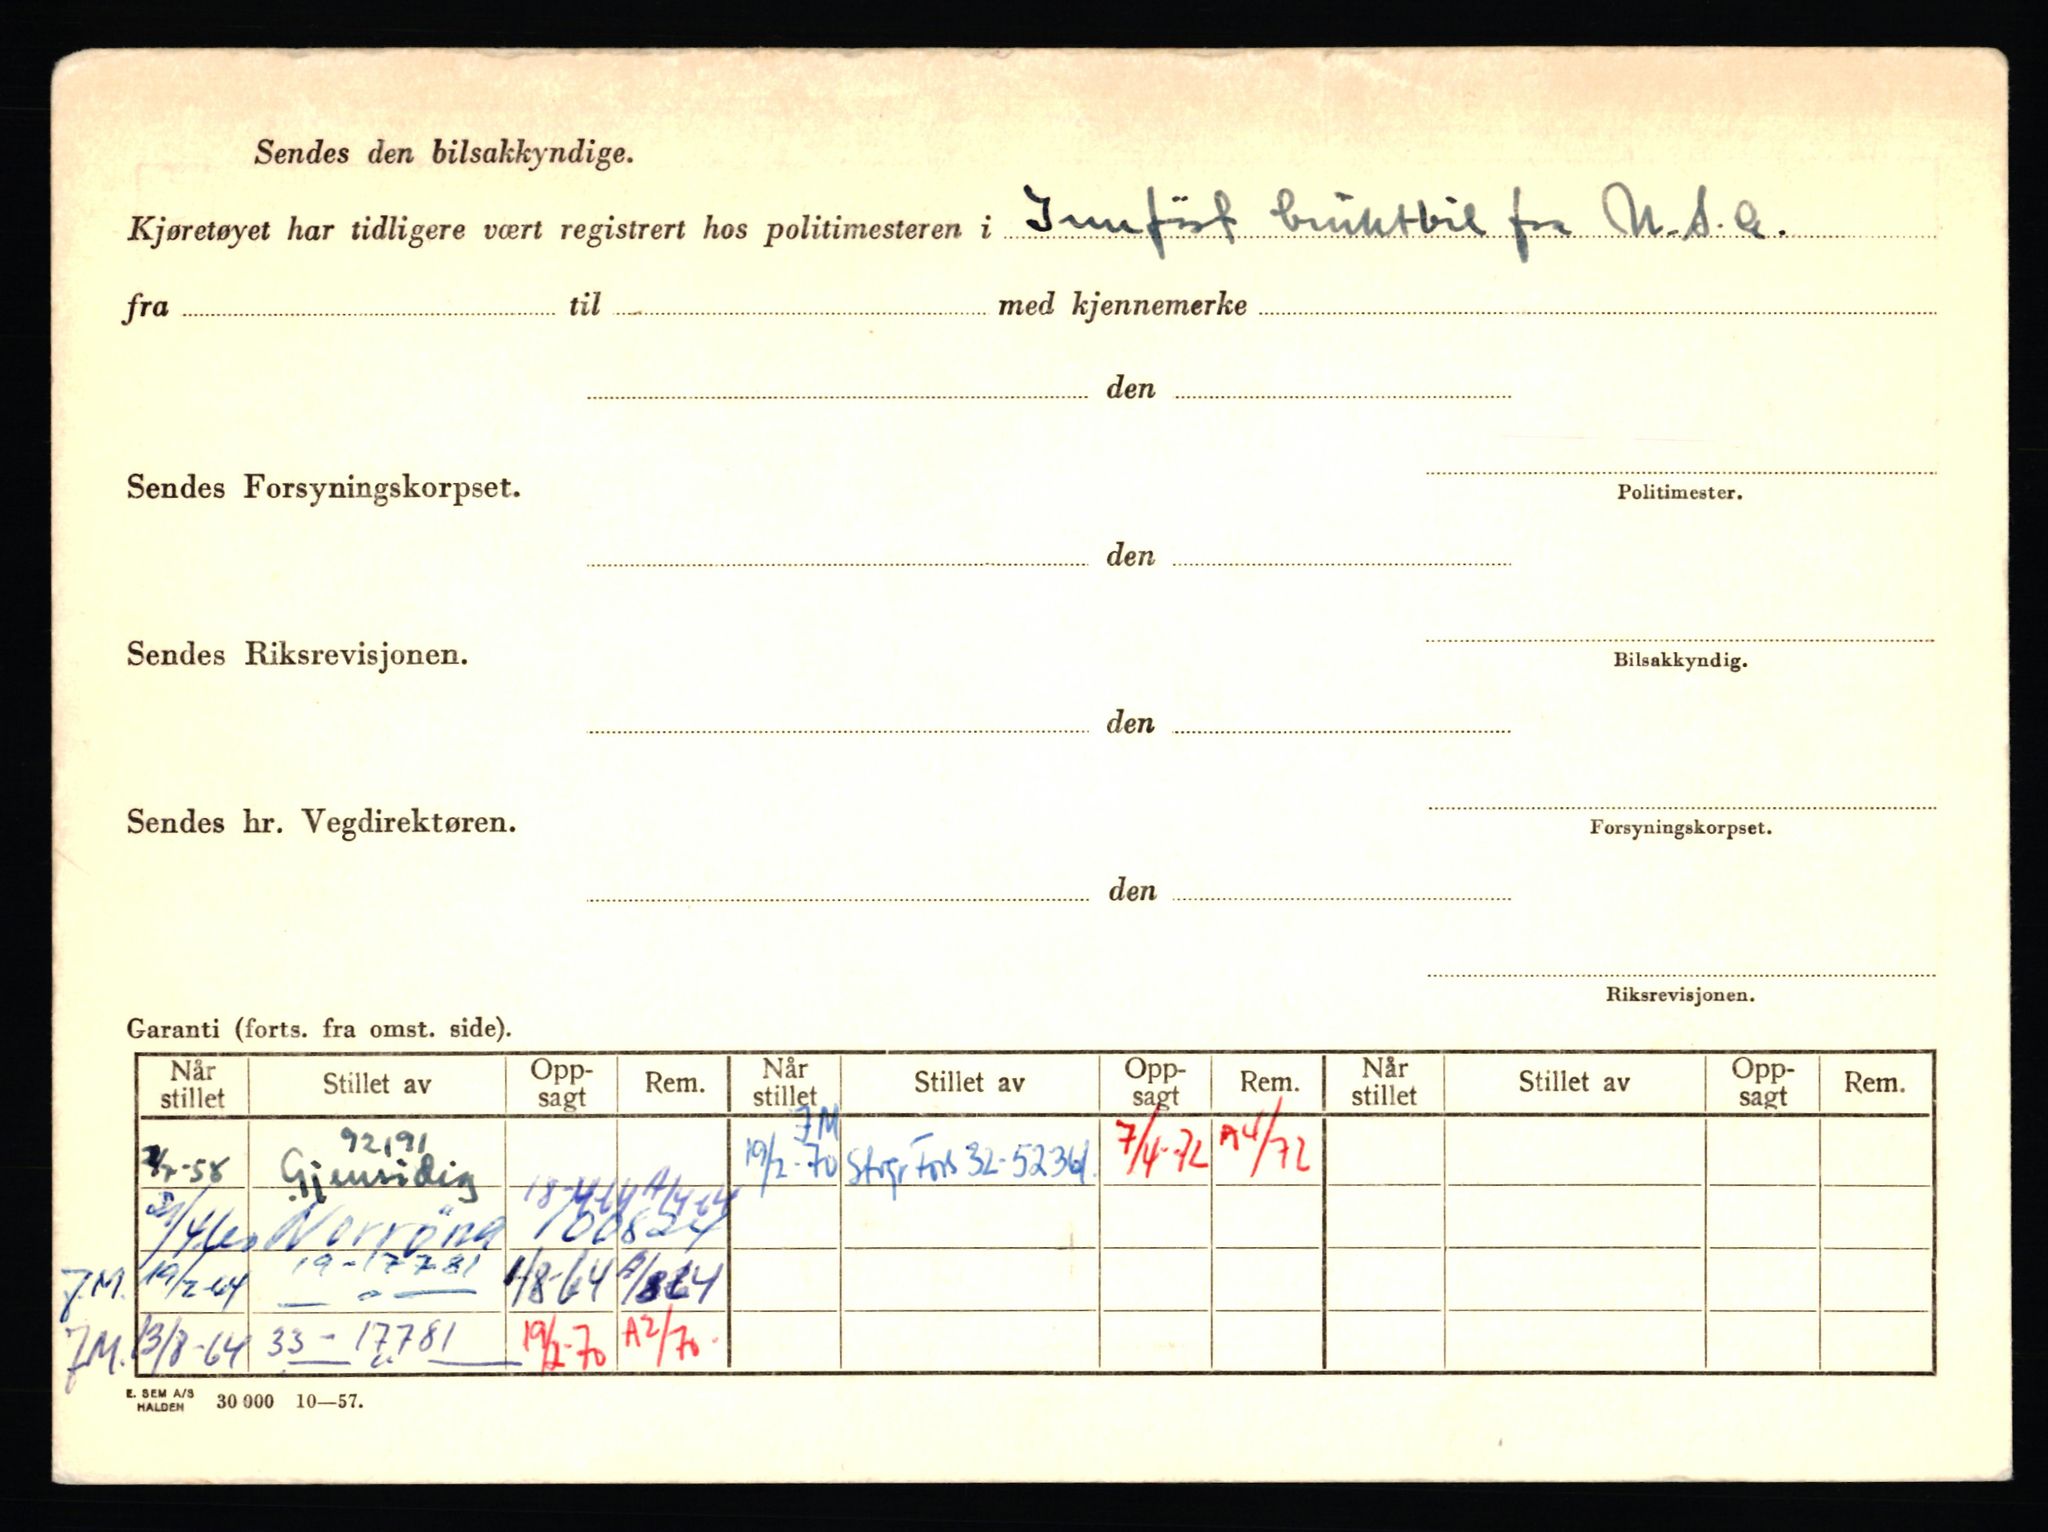 Sendes den bilsakkyndige.
Kjøretøyet har tidligere vært registrert hos politimesteren i Innført bruktbil fra U.S.A.
fra til med kjennemerke
den
Politimester.
Sendes Forsyningskorpset.
den
Bilsakkyndig.
Sendes Riksrevisjonen.
den
Forsyningskorpset.
Sendes hr. Vegdirektøren.
den
Riksrevisjonen.
Garanti (forts. fra omst. side).
Når stillet Stillet av Opp-sagt Rem. Når stillet Stillet av Opp-sagt Rem. Når stillet Stillet av Opp-sagt Rem.
92191 7M
-58 Gjensidig 19/2-70 Fors 32-52361. 7/4-72 A4/72
18-4-64 A/4-64
Norröna 100824
7.M. 19/2-64 19-17781 1/8-64 A/864
— " —
7M. 13/8-64 33-17781 19/2-70 A2/70.
— " —
E. SEM A/S
HALDEN 30 000 10—57.